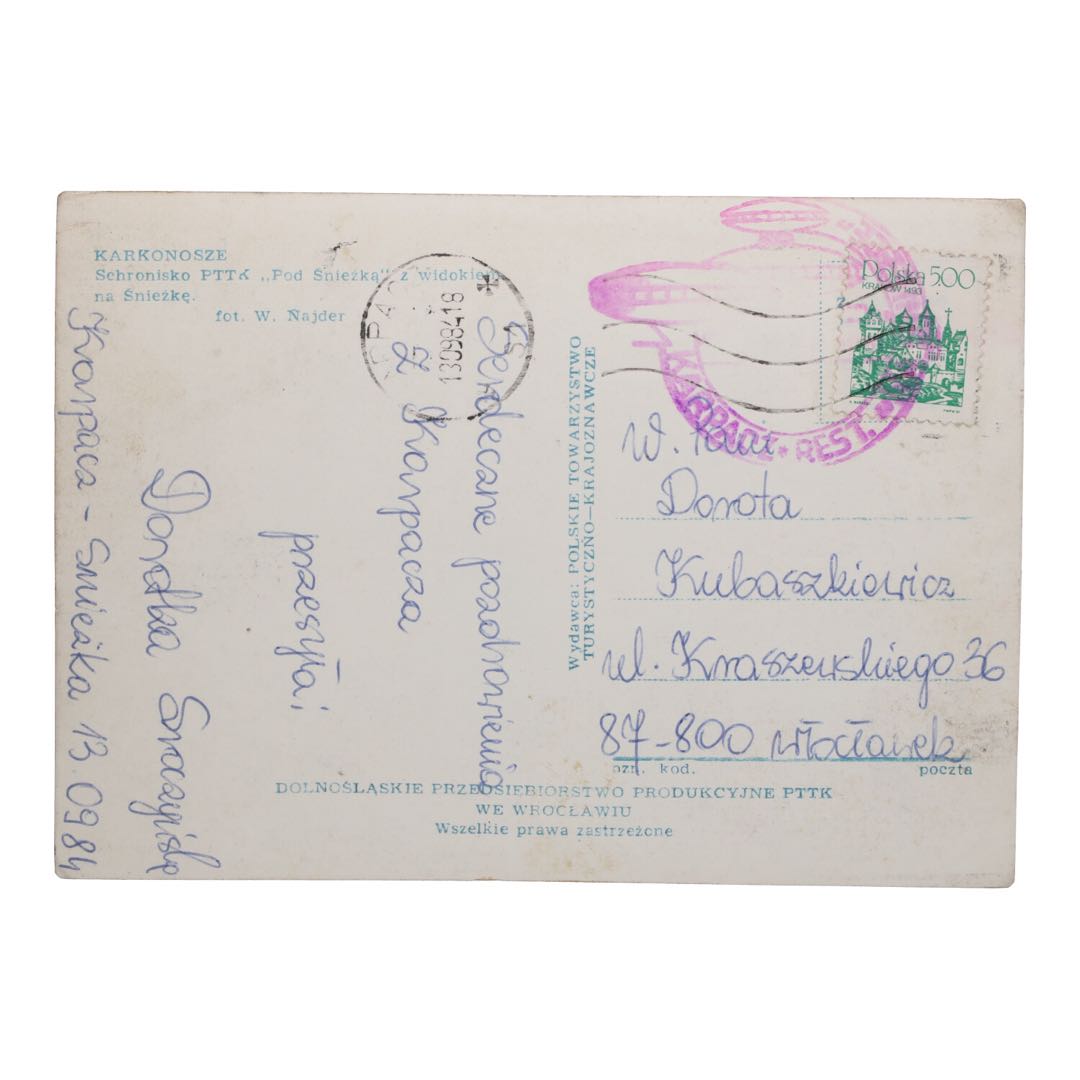 KARKONOSZE
Schronisko PTTK „Pod Śnieżką" z widokiem
na Śnieżkę.
fot. W. Najder
13098418
Serdeczne pozdrowienia
z Karpacza
przesyła:
Dorotka
Karpacz - Śnieżka 13.09.84
Wydawca: POLSKIE TOWARZYSTWO
TURYSTYCZNO—KRAJOZNAWCZE
Polska 5.00
KRAKÓW 1493
KARPACZ ★ REST.
W. Pani
Dorota
Kubaszkiewicz
ul. Kraszewskiego 36
87-800 Włocławek
ozn. kod. poczta
DOLNOŚLĄSKIE PRZEDSIĘBIORSTWO PRODUKCYJNE PTTK
WE WROCŁAWIU
Wszelkie prawa zastrzeżone